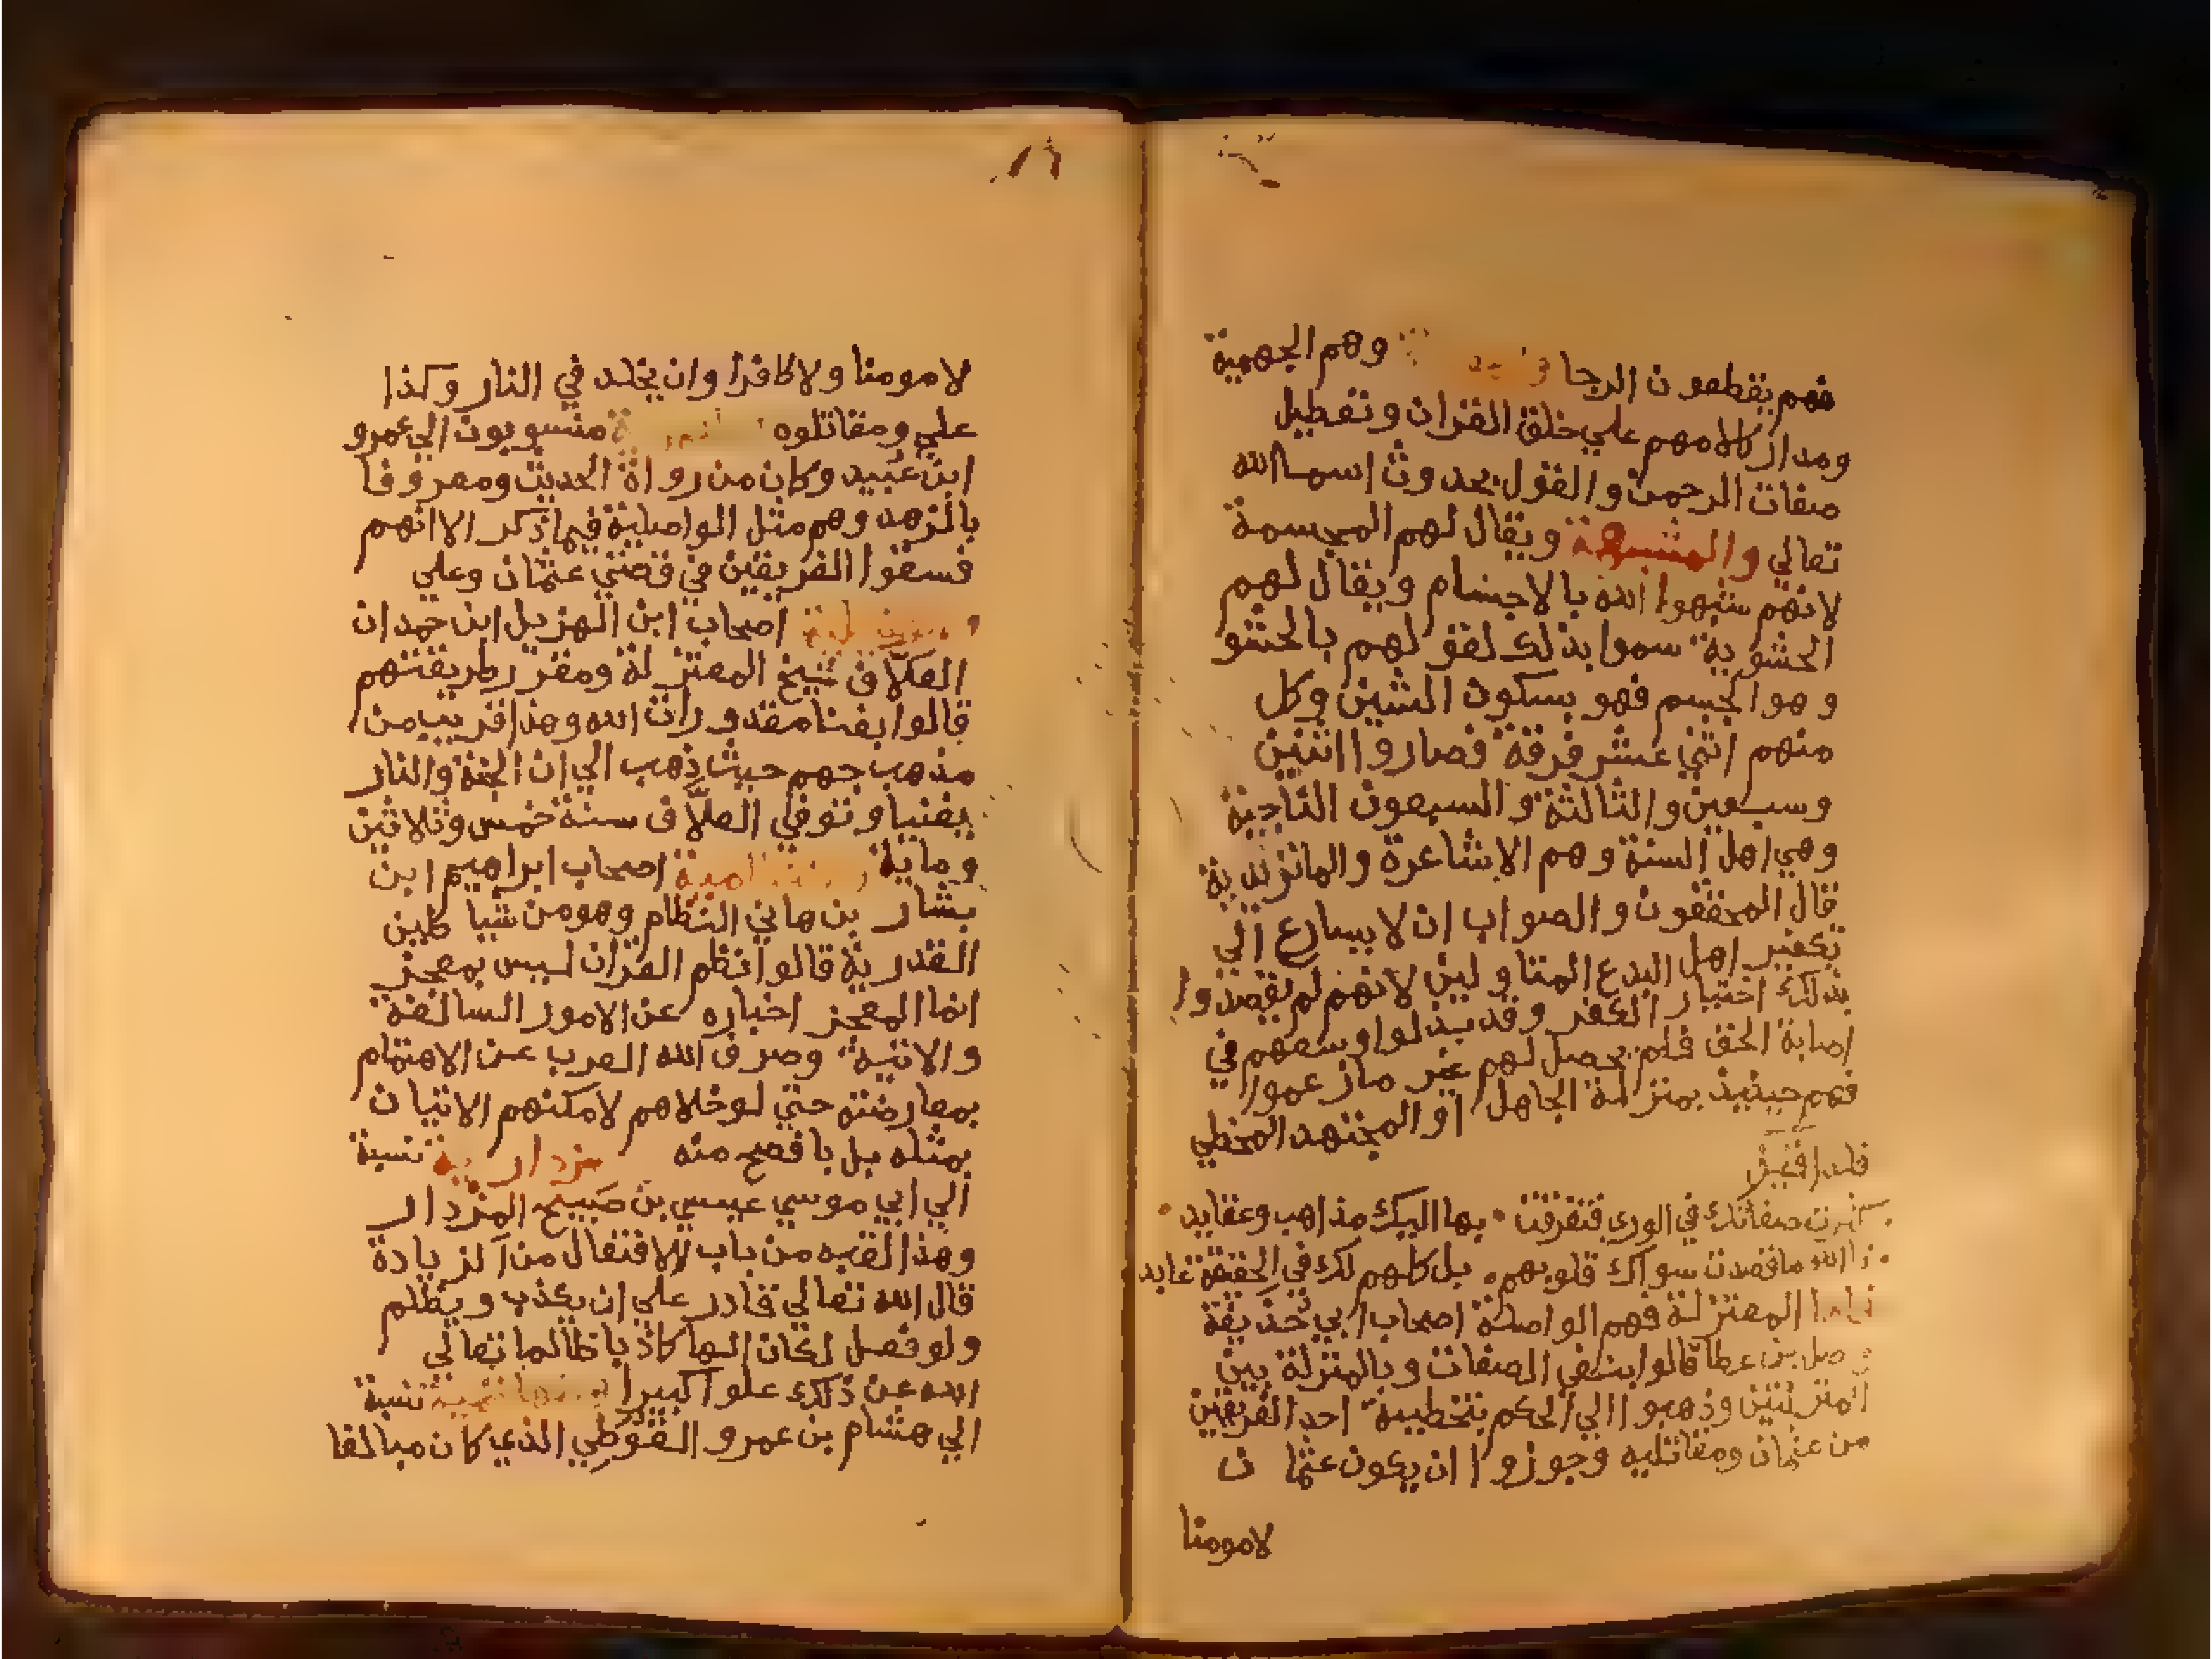 فهم يقطعون الرجا وهم الجهمية
ومدار كلامهم علي خلق القران وتعطيل
صفات الرحمن والقول بحدوث اسما الله
تعالي والمشبهة ويقال لهم المجسمة
لانهم شبهوا الله بالاجسام ويقال لهم
الحشوية سموا بذلك لقولهم بالحشو
وهو الجسم فهو بسكون الشين وكل
منهم اثني عشر فرقة فصاروا اثنين
وسبعين والثالثة والسبعون الناجية
وهي اهل السنة وهم الاشاعرة والماتريدية
قال المحققون والصواب ان لا يسارع الي
تكفير اهل البدع المتاولين لانهم لم يقصدوا
بذلك اختيار الكفر وقد بذلوا وسعهم في
اصابة الحق فلم يحصل لهم غير ما زعموا
فهم حينيذ بمنزلة الجاهل او المجتهد المخطي
صفاتك في الوري فتفرقت بها اليك مذاهب وعقايد
ما قصدت سواك قلوبهم بل كلهم لك في الحقيقة عابد
المعتزلة فهم الواصلية اصحاب ابي حذيفة
واصل بن عطا قالوا بنفي الصفات وبالمنزلة بين
المنزلتين وذهبوا الي الحكم بتخطيية احد الفريقين
من عثمان ومقاتليه وجوزوا ان يكون عثمان
لا مومنا
لا مومنا ولا كافرا وان يخلد في النار وكذا
علي ومقاتلوه منسوبون الي عمرو
ابن عبيد وكان من رواة الحديث ومعروفا
بالزهد وهم مثل الواصلية فيما ذكر الا انهم
فسقوا الفريقين في قصتي عثمان وعلي
اصحاب ابن الهزيل ابن حمدان
العلاف شيخ المعتزلة ومقرر طريقتهم
قالوا بفنا مقدورات الله وهذا قريب من
مذهب جهم حيث ذهب الي ان الجنة والنار
يفنيا وتوفي العلاف سنة خمس وثلاثين
وماية اصحاب ابراهيم ابن
بشار بن هاني النظام وهو من شياطين
القدرية قالوا نظم القران ليس بمعجز
انما المعجز اخباره عن الامور السالفة
والاتية وصرف الله العرب عن الاهتمام
بمعارضته حتي لو خلاهم لامكنهم الاتيان
بمثله بل بافصح منه مزدارية نسبة
الي ابي موسي عيسي بن صبيح المزدار
وهذا لقبه من باب الافتعال من الزيادة
قال الله تعالي قادر علي ان يكذب ويظلم
ولو فعل لكان الها كاذبا ظالما تعالي
الله عن ذلك علوا كبيرا نسبة
الي هشام بن عمرو الفوطي الذي كان مبالغا